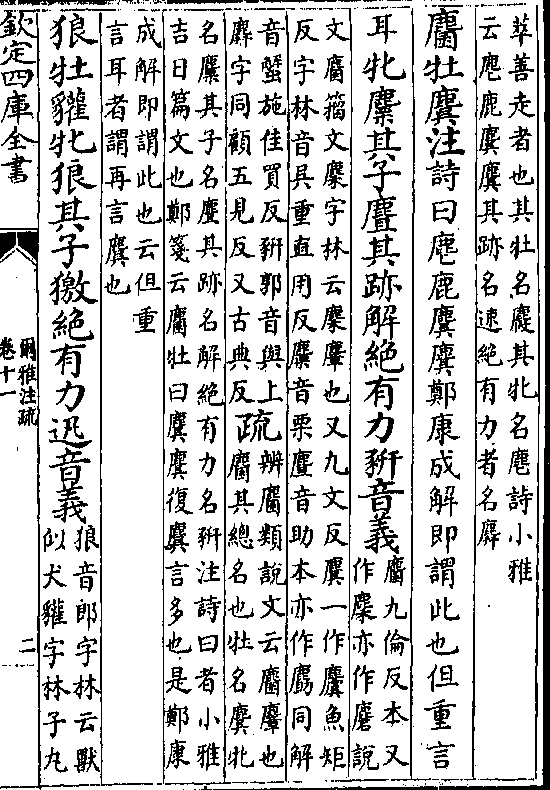 萃善走者也其牡名麌其牝名麀詩小雅
云麀鹿麌麌其跡名速絶有力者名䴪
麕牡麌注詩曰麀鹿麌麌鄭康成解即謂此也但重言
耳牝麜其子麆其跡解絶有力豜音義
麕九倫反本又
作麇亦作麏說
文麕籀文麇字林云麇麞也又九文反麌一作麌魚矩
反字林音吳重直用反麜音栗麆音助本亦作䴢同解
音蟹施佳買反豜郭音與上
麉字同顧五見反又古典反
疏
辨麕類說文云麕麞也
麕其總名也牡名麌牝
名麜其子名麆其跡名解絶有力名豜注詩曰者小雅
吉日篇文也鄭箋云麕牡曰麌麌復麌言多也是鄭康
成解即謂此也云但重
言耳者謂再言麌也
狼牡貛牝狼其子獥絶有力迅音義
狼音郎字林云獸
似犬貛字林子丸
欽定四庫全書
爾雅注疏
卷十一
二